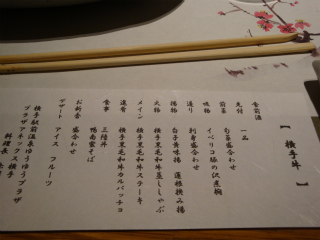 【 横手牛 】
食前酒
先付 一品
前菜 旬菜盛合わせ
吸物 イベリコ豚の沢煮椀
造り 刺身盛合わせ
揚物 白子黄味揚 蓮根挟み揚
火物 横手黒毛和牛蒸ししゃぶ
メイン 横手黒毛和牛ステーキ
温肴 横手黒毛和牛カルパッチョ
食事 三陸丼
鴨南蛮そば
お新香 盛合わせ
デザート アイス フルーツ
横手駅前温泉ゆうゆうプラザ
プラザアネックス横手
料理長